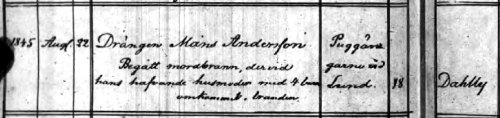 1845 Aug. 22 Drängen Måns Andersson
Begått mordbrann, dervid
hans hafvande husmoder med 4 barn
omkommit i branden
garne vid
Lund. 18 Dahlby